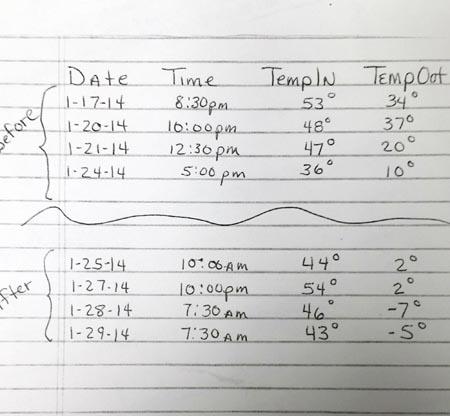 Date Time TempIN TempOut
Before
1-17-14 8:30pm 53° 34°
1-20-14 10:00pm 48° 37°
1-21-14 12:30pm 47° 20°
1-24-14 5:00pm 36° 10°
After
1-25-14 10:00AM 44° 2°
1-27-14 10:00pm 54° 2°
1-28-14 7:30AM 46° -7°
1-29-14 7:30AM 43° -5°